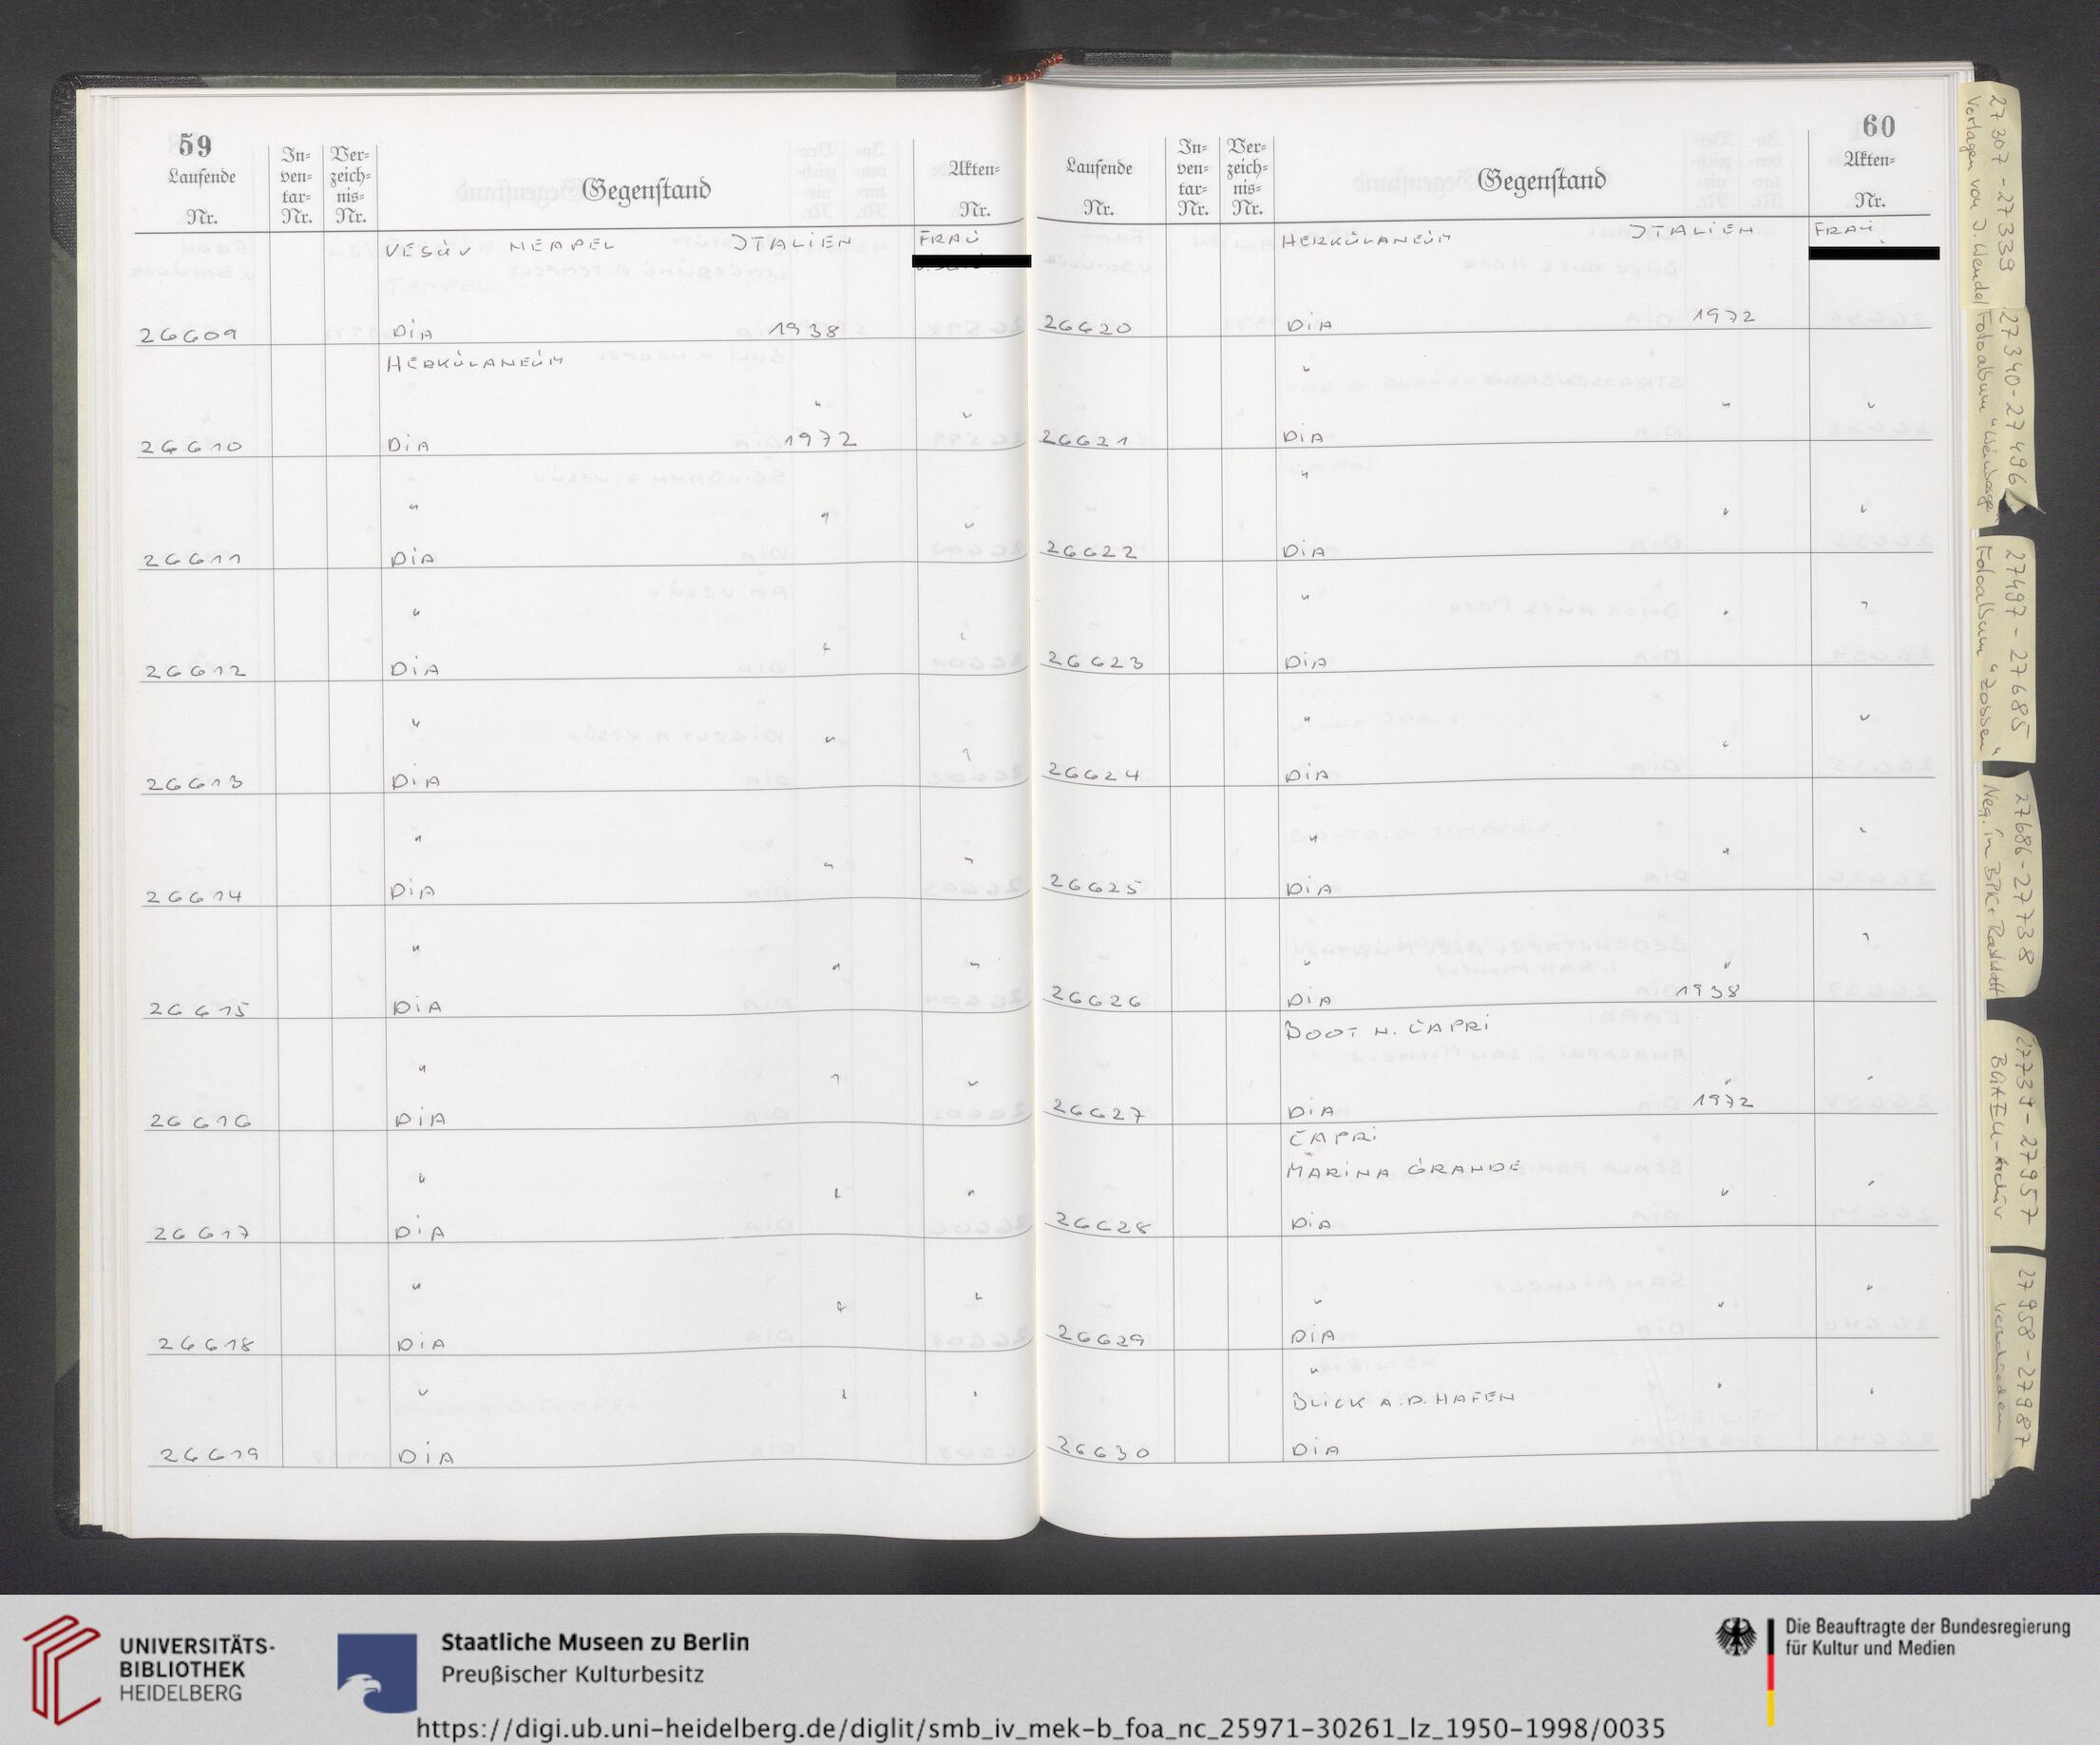 59
Laufende Nr.
In-ven-tar-Nr.
Ver-zeich-nis-Nr.
Gegenstand
Akten-Nr.
VESÜV NEAPEL ITALIEN FRAU
26609 DIA 1938
HERKÜLANEÜM
" "
26610 DIA 1972
" " "
26611 DIA
" " "
26612 DIA
" " "
26613 DIA
" " "
26614 DIA
" " "
26615 DIA
" " "
26616 DIA
" " "
26617 DIA
" " "
26618 DIA
" " "
26619 DIA
60
Laufende Nr.
In-ven-tar-Nr.
Ver-zeich-nis-Nr.
Gegenstand
Akten-Nr.
HERKÜLANEÜM ITALIEN FRAU
26620 DIA 1972
" " "
26621 DIA
" " "
26622 DIA
" " "
26623 DIA
" " "
26624 DIA
" " "
26625 DIA
" " "
26626 DIA 1938
BOOT N. CAPRI
" "
26627 DIA 1972
CAPRI
MARINA GRANDE
" "
26628 DIA
" " "
26629 DIA
" " "
BLICK A.D. HAFEN
26630 DIA
27307-27339
Vorlagen von J. Wendel
27340-27496
Fotoalbum
27497-27685
Fotoalbum "Zossen"
27686-27738
Neg. in BPK, Rastatt
27739-27957
BGAEU-Archiv
27958-27987
verschiedenes
UNIVERSITÄTS-
BIBLIOTHEK
HEIDELBERG
Staatliche Museen zu Berlin
Preußischer Kulturbesitz
Die Beauftragte der Bundesregierung
für Kultur und Medien
https://digi.ub.uni-heidelberg.de/diglit/smb_iv_mek-b_foa_nc_25971-30261_lz_1950-1998/0035